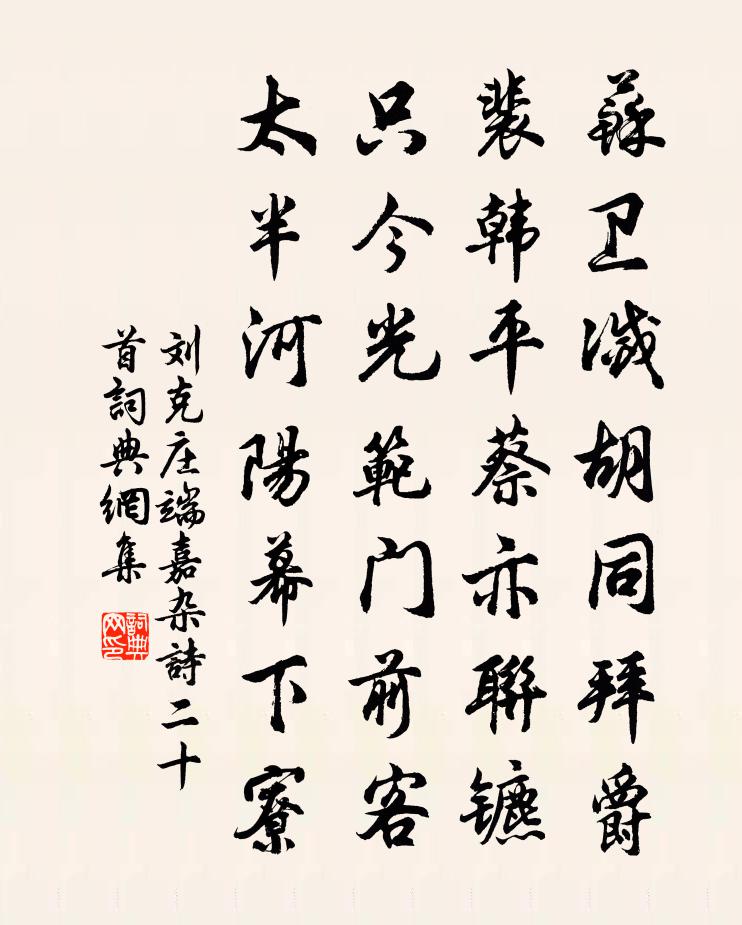 蘇卫滅胡同拜爵
裴韩平蔡亦聯镳
只今光範门前客
太半河陽幕下寮
刘克庄端嘉杂詩二十
首詞典網集
詞典网印